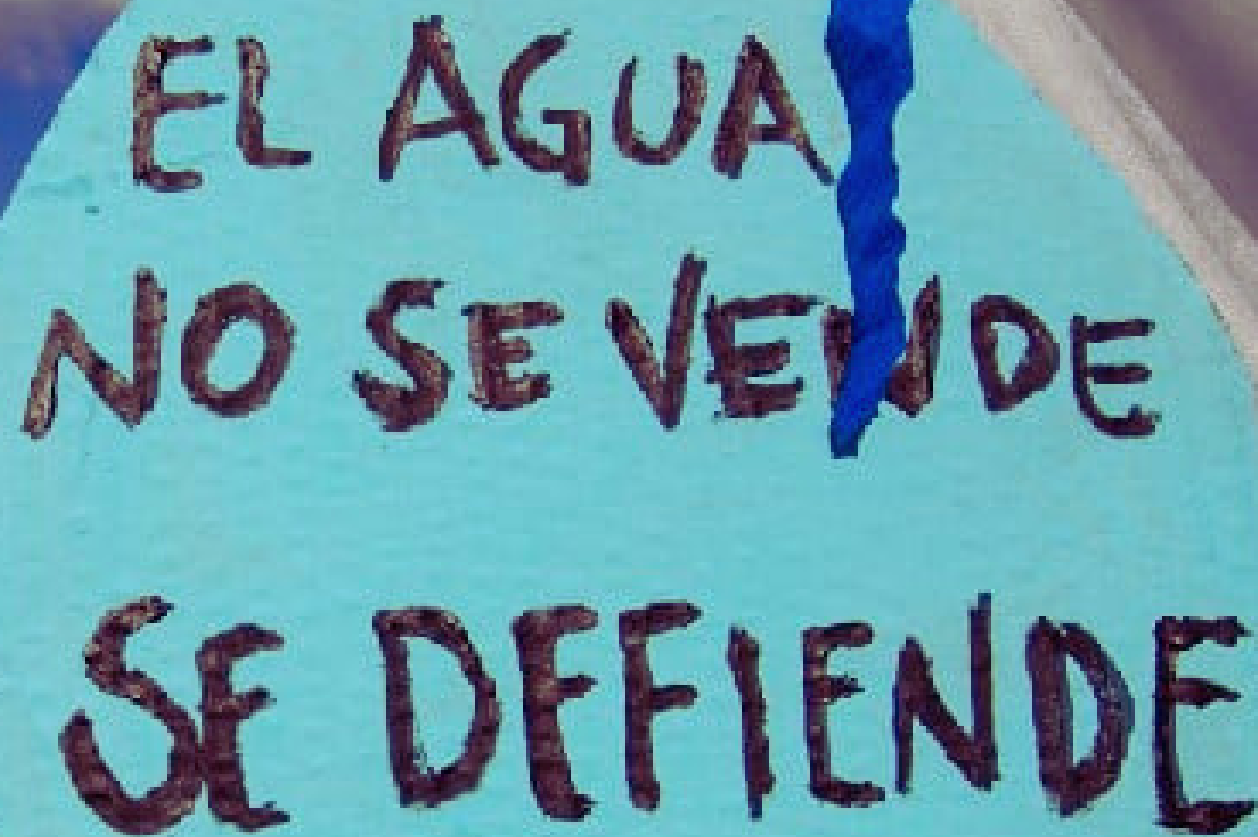 EL AGUA
NO SE VENDE
SE DEFIENDE